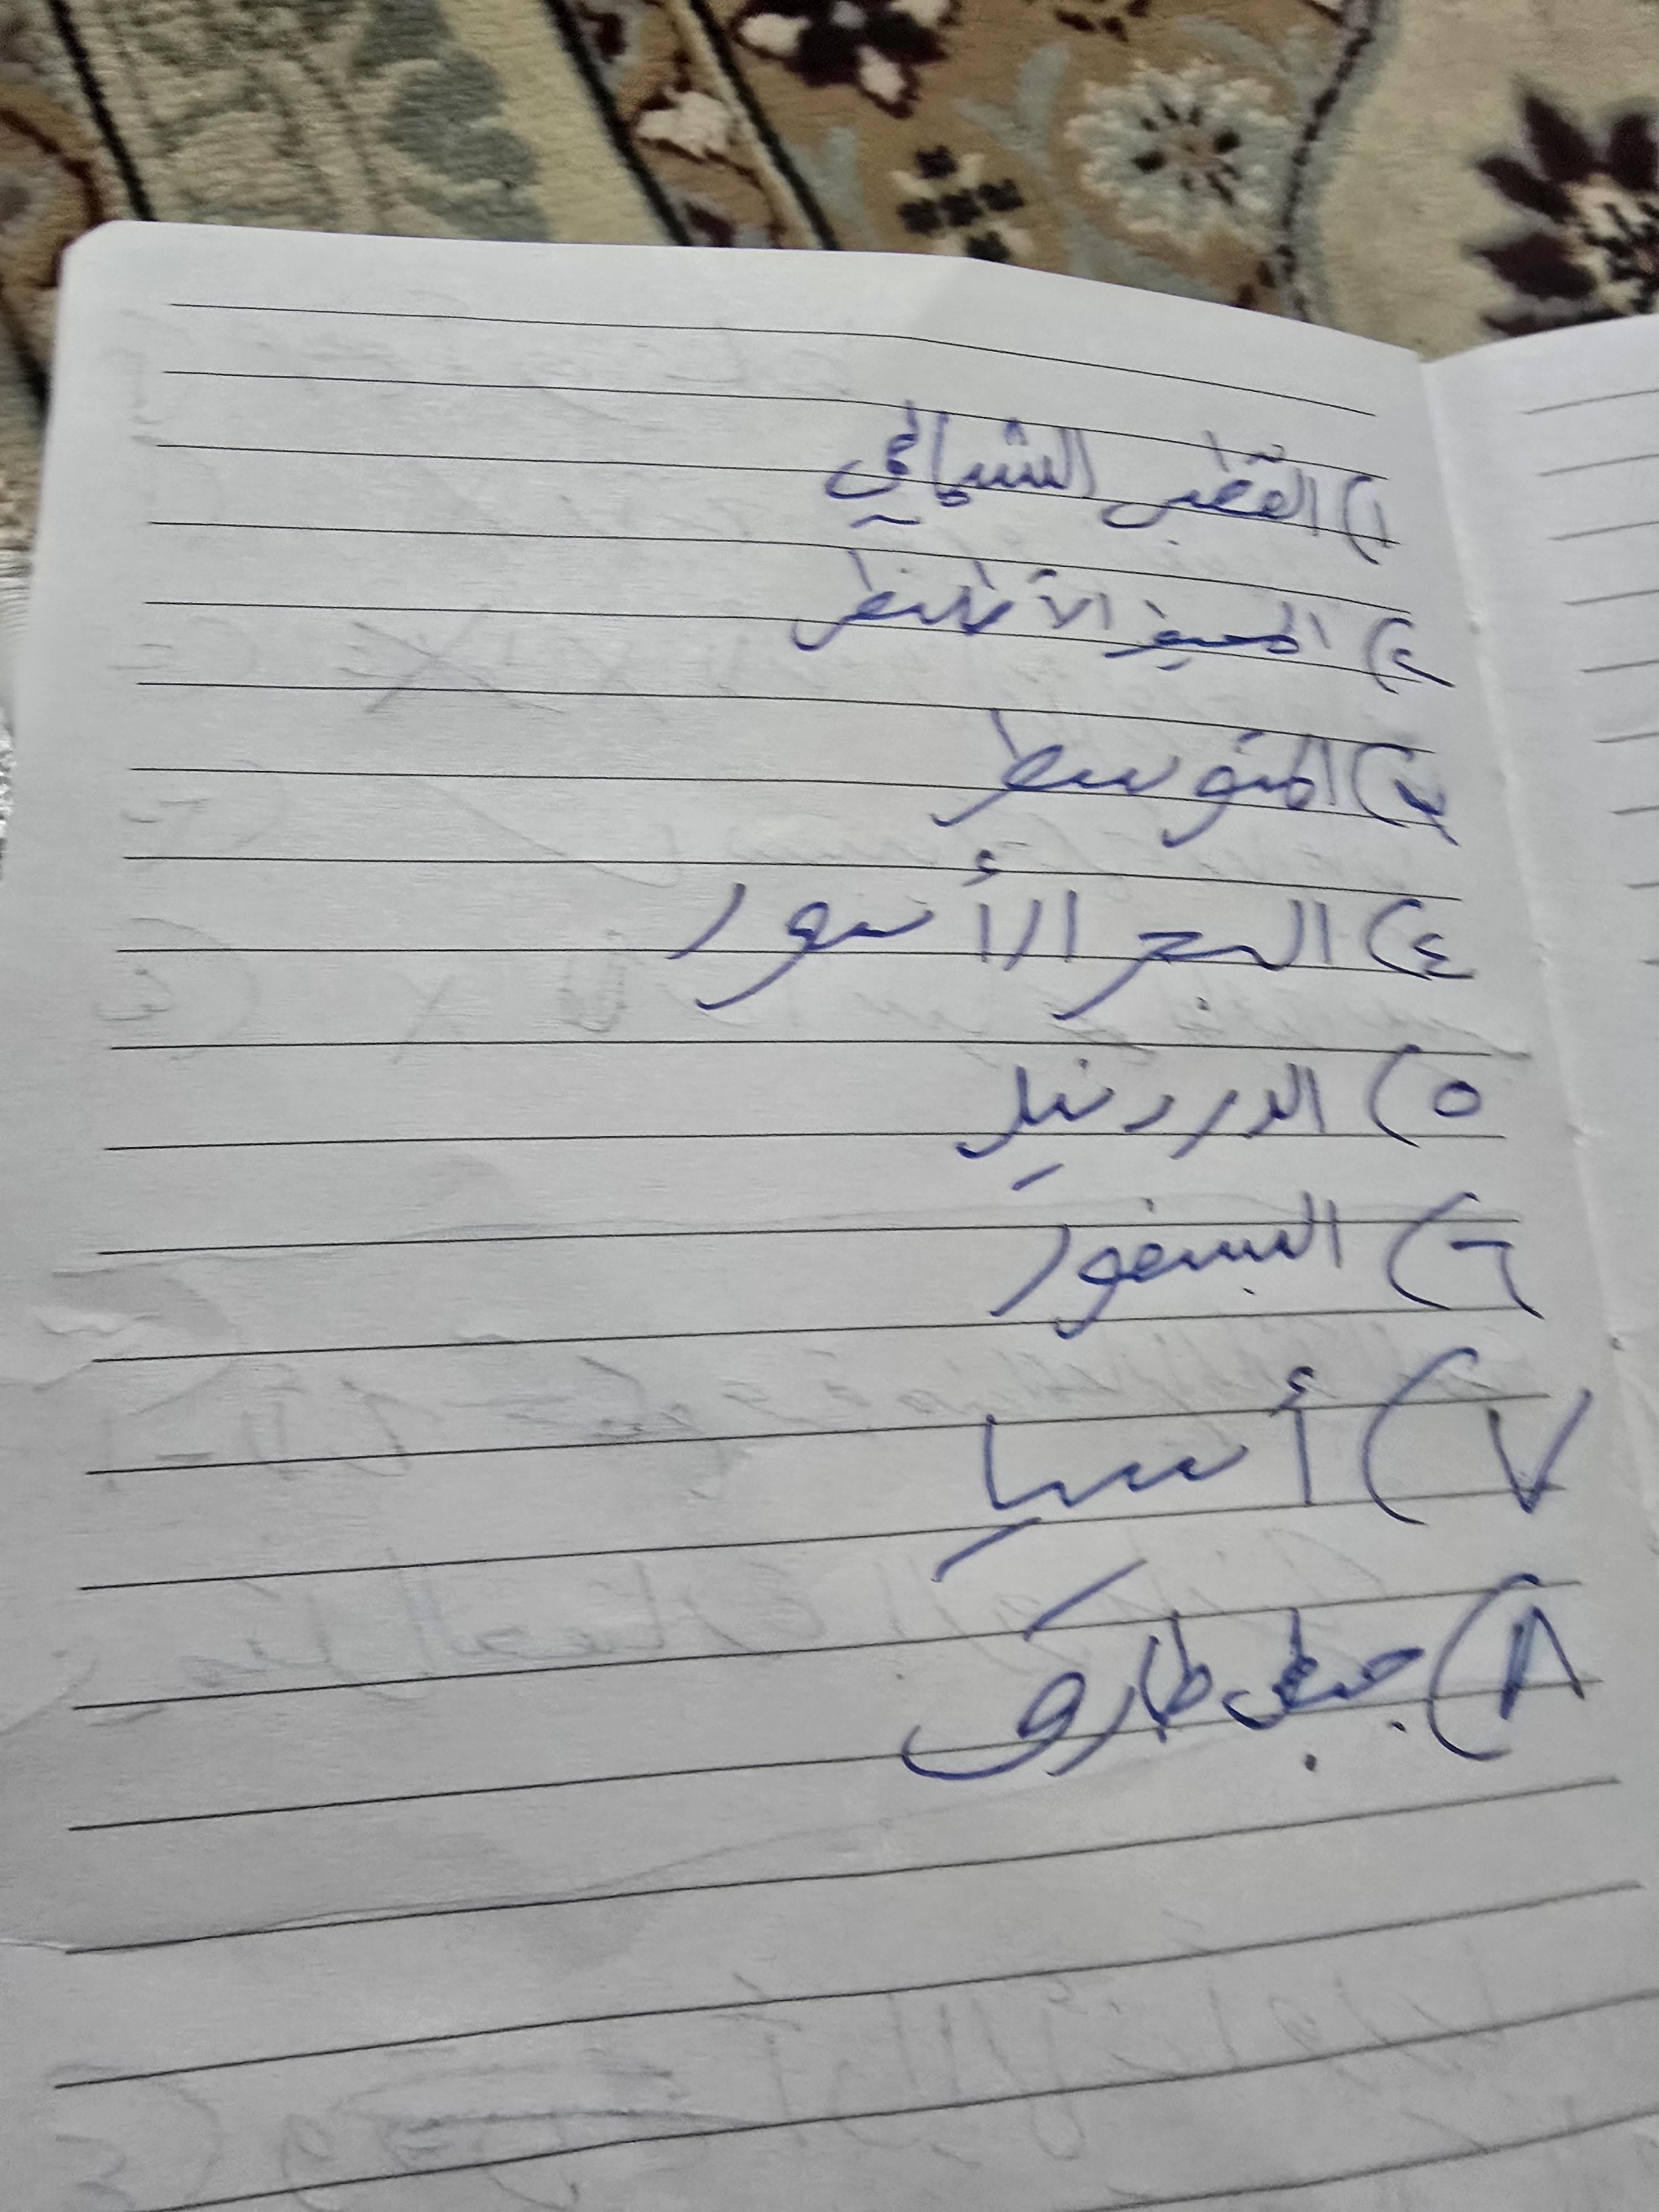 ١) القطبي الشمالي
٢) المحيط الأطلنطي
٣) المتوسط
٤) البحر الأسود
٥) الدردنيل
٦) البسفور
٧) أسيا
٨) جبل طارق